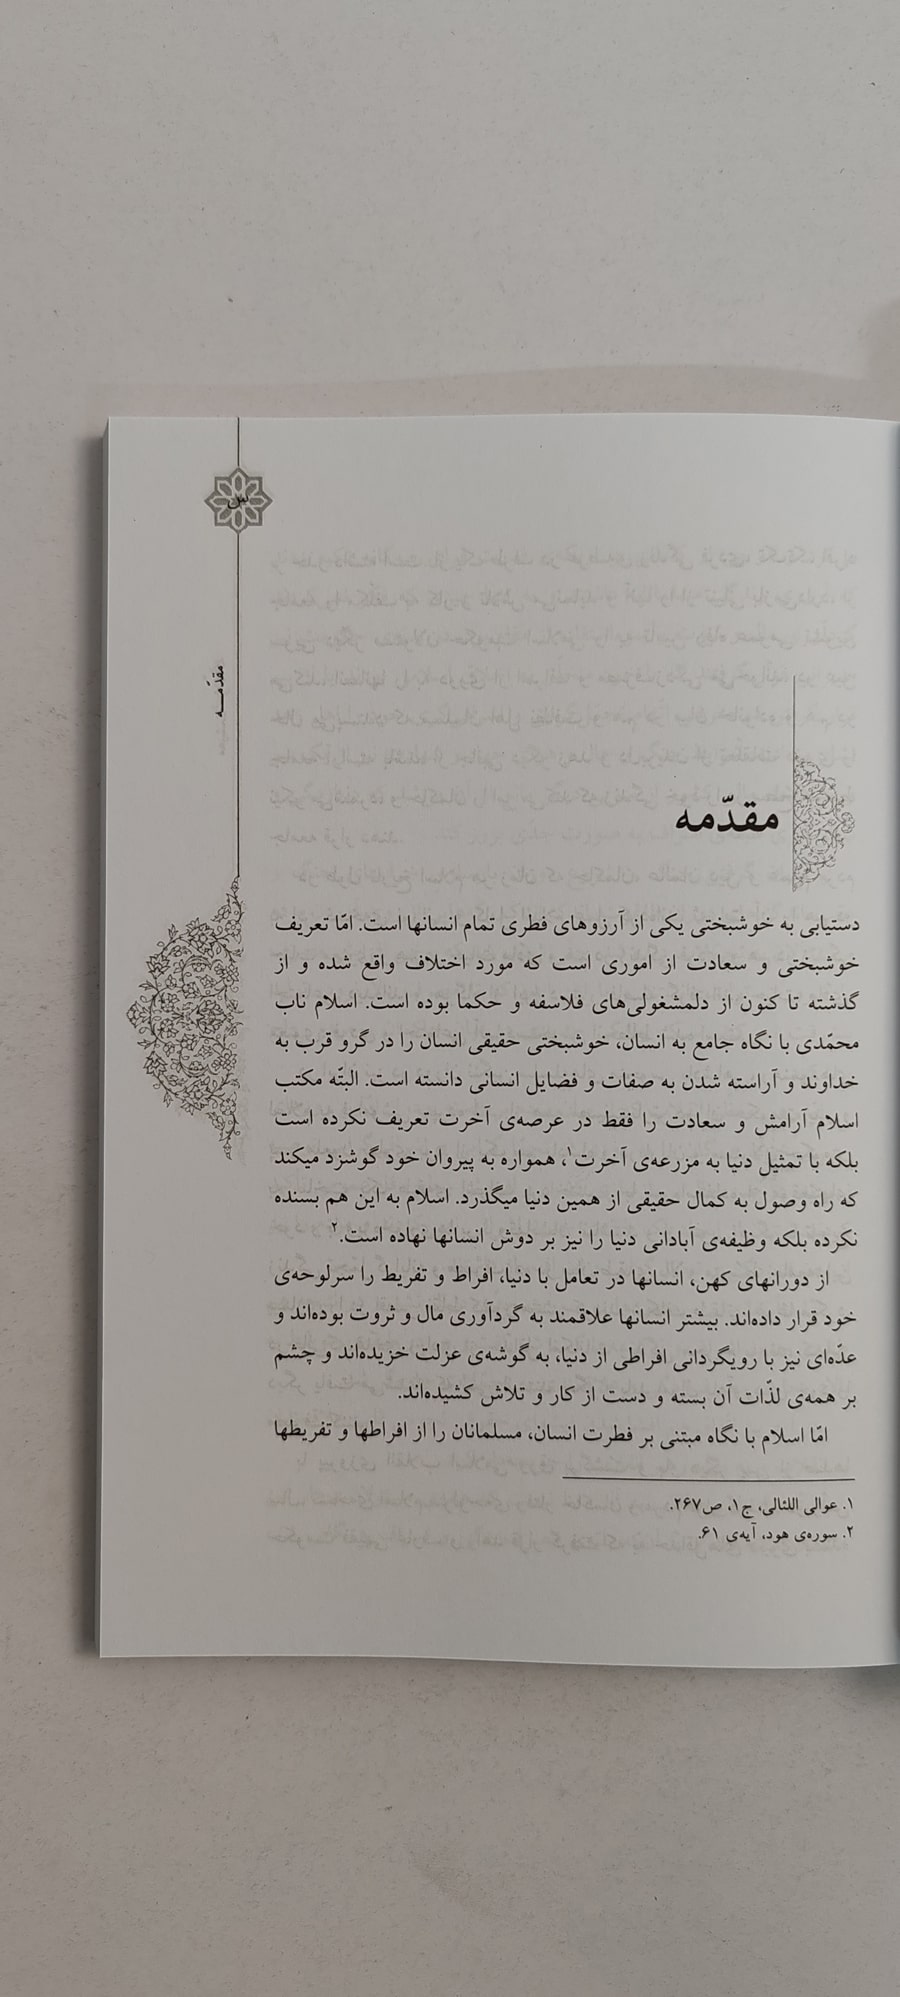 س
مقدّمه
مقدّمه
دستیابی به خوشبختی یکی از آرزوهای فطری تمام انسانها است. امّا تعریف
خوشبختی و سعادت از اموری است که مورد اختلاف واقع شده و از
گذشته تا کنون از دلمشغولی‌های فلاسفه و حکما بوده است. اسلام ناب
محمّدی با نگاه جامع به انسان، خوشبختی حقیقی انسان را در گرو قرب به
خداوند و آراسته شدن به صفات و فضایل انسانی دانسته است. البتّه مکتب
اسلام آرامش و سعادت را فقط در عرصه‌ی آخرت تعریف نکرده است
بلکه با تمثیل دنیا به مزرعه‌ی آخرت۱، همواره به پیروان خود گوشزد میکند
که راه وصول به کمال حقیقی از همین دنیا میگذرد. اسلام به این هم بسنده
نکرده بلکه وظیفه‌ی آبادانی دنیا را نیز بر دوش انسانها نهاده است.۲
از دورانهای کهن، انسانها در تعامل با دنیا، افراط و تفریط را سرلوحه‌ی
خود قرار داده‌اند. بیشتر انسانها علاقمند به گردآوری مال و ثروت بوده‌اند و
عدّه‌ای نیز با رویگردانی افراطی از دنیا، به گوشه‌ی عزلت خزیده‌اند و چشم
بر همه‌ی لذّات آن بسته و دست از کار و تلاش کشیده‌اند.
امّا اسلام با نگاه مبتنی بر فطرت انسان، مسلمانان را از افراطها و تفریطها
۱. عوالی اللئالی، ج۱، ص۲۶۷.
۲. سوره‌ی هود، آیه‌ی ۶۱.